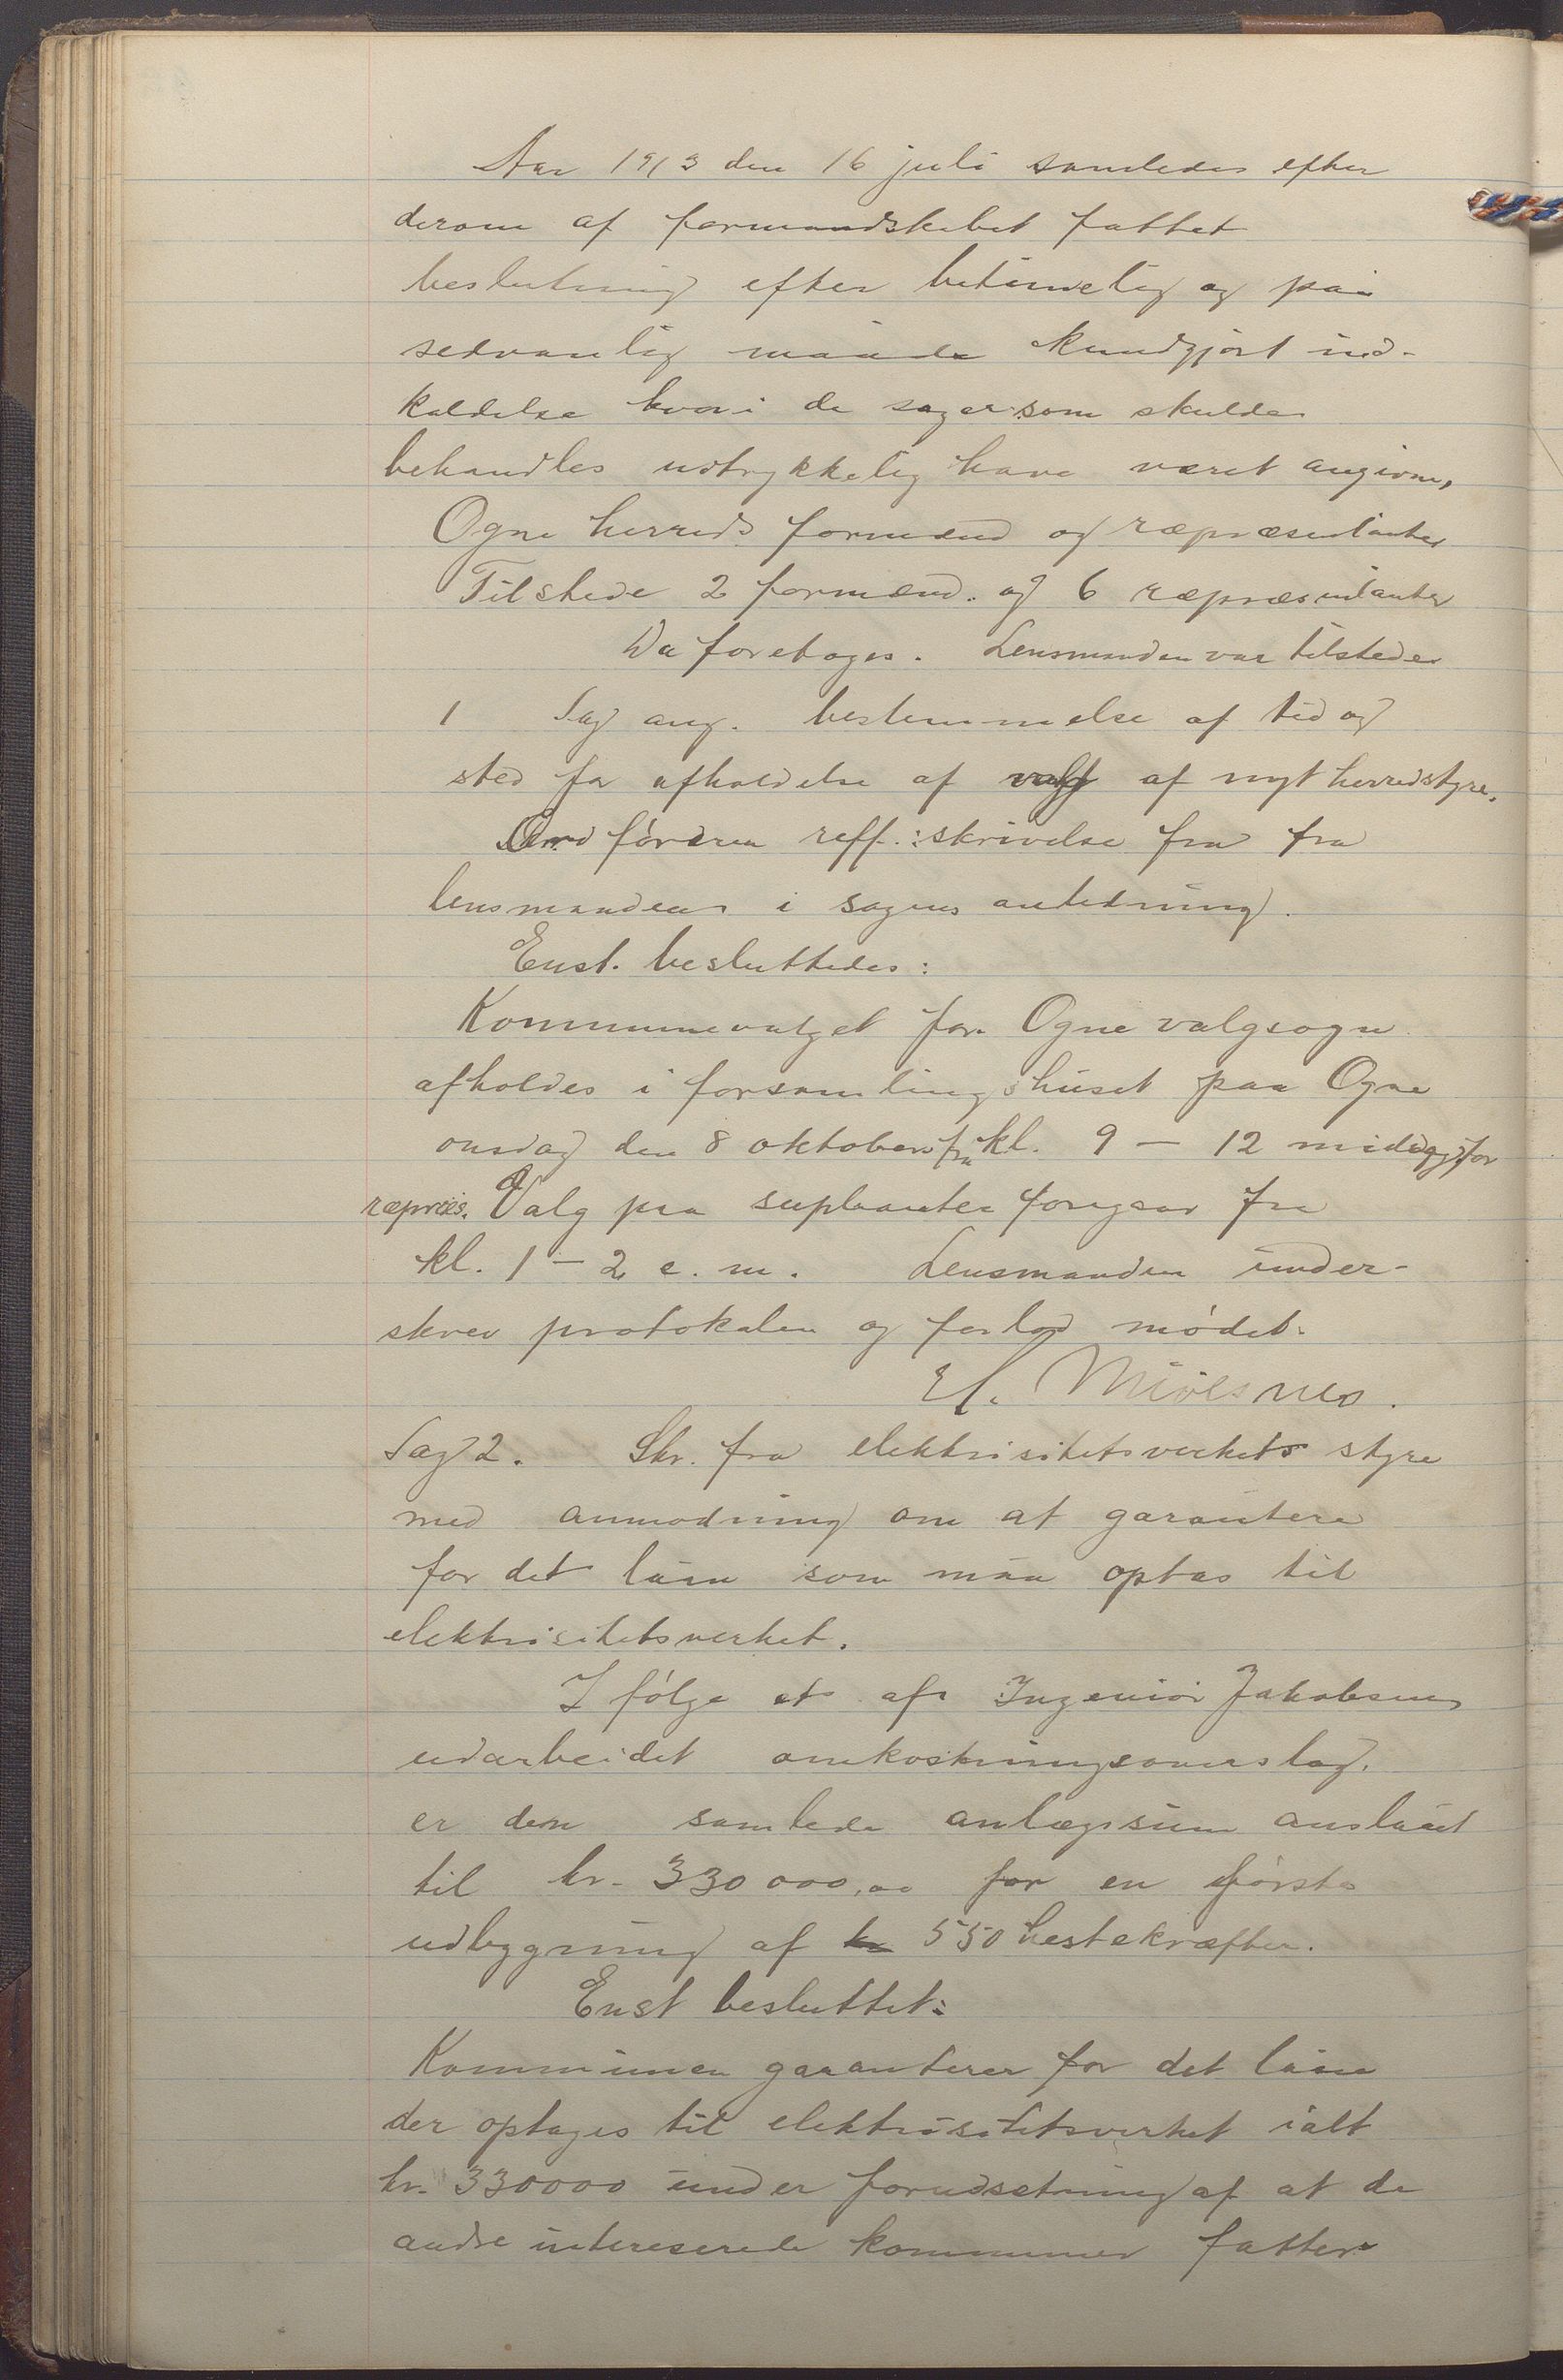 Aar 1913 den 16 juli samledes efter
derom af formandskabet fattet
beslutning efter betimelig og paa
sedvanlig maade kundgjort ind-
kaldelse hvori de sager som skulde
behandles udtrykkelig have været angivne,
Ogne herreds formænd og repræsentanter
Tilstede 2 formænd. og 6 repræsentanter
Da foretoges. Lensmanden var tilstede
1 Sag ang. bestemmelse af tid og
sted for afholdelse af valg af nyt herredstyre.
Ordføreren reff.: skrivelse fra fra
lensmanden i sagens anledning.
Enst. besluttedes:
Kommunevalget for Ogne valgsogn
afholdes i forsamlingshuset paa Ogne
onsdag den 8 oktober fra kl. 9 — 12 middag for
repræs. Valg paa suplanter foregaar fra
kl. 1 — 2 e. m. Lensmanden under-
skrev protokolen og forlod mødet.
Sag 2. Skr. fra elektrisitetsverkets styre
med anmodning om at garantere
for det laan som maa optas til
elektrisitetsverket.
I følge et af Ingeniør Jakobsen
udarbeidet omkostningsoverslag.
er den samlede anlægssum anslaaet
til kr. 330 000,00 for en første
udbygning af kr 550 hestekræfter.
Enst besluttet:
Kommunen garanterer for det laan
der optages til elektrisitetsverket ialt
kr. 330000 under forudsetning af at de
andre intereserede kommuner fatter